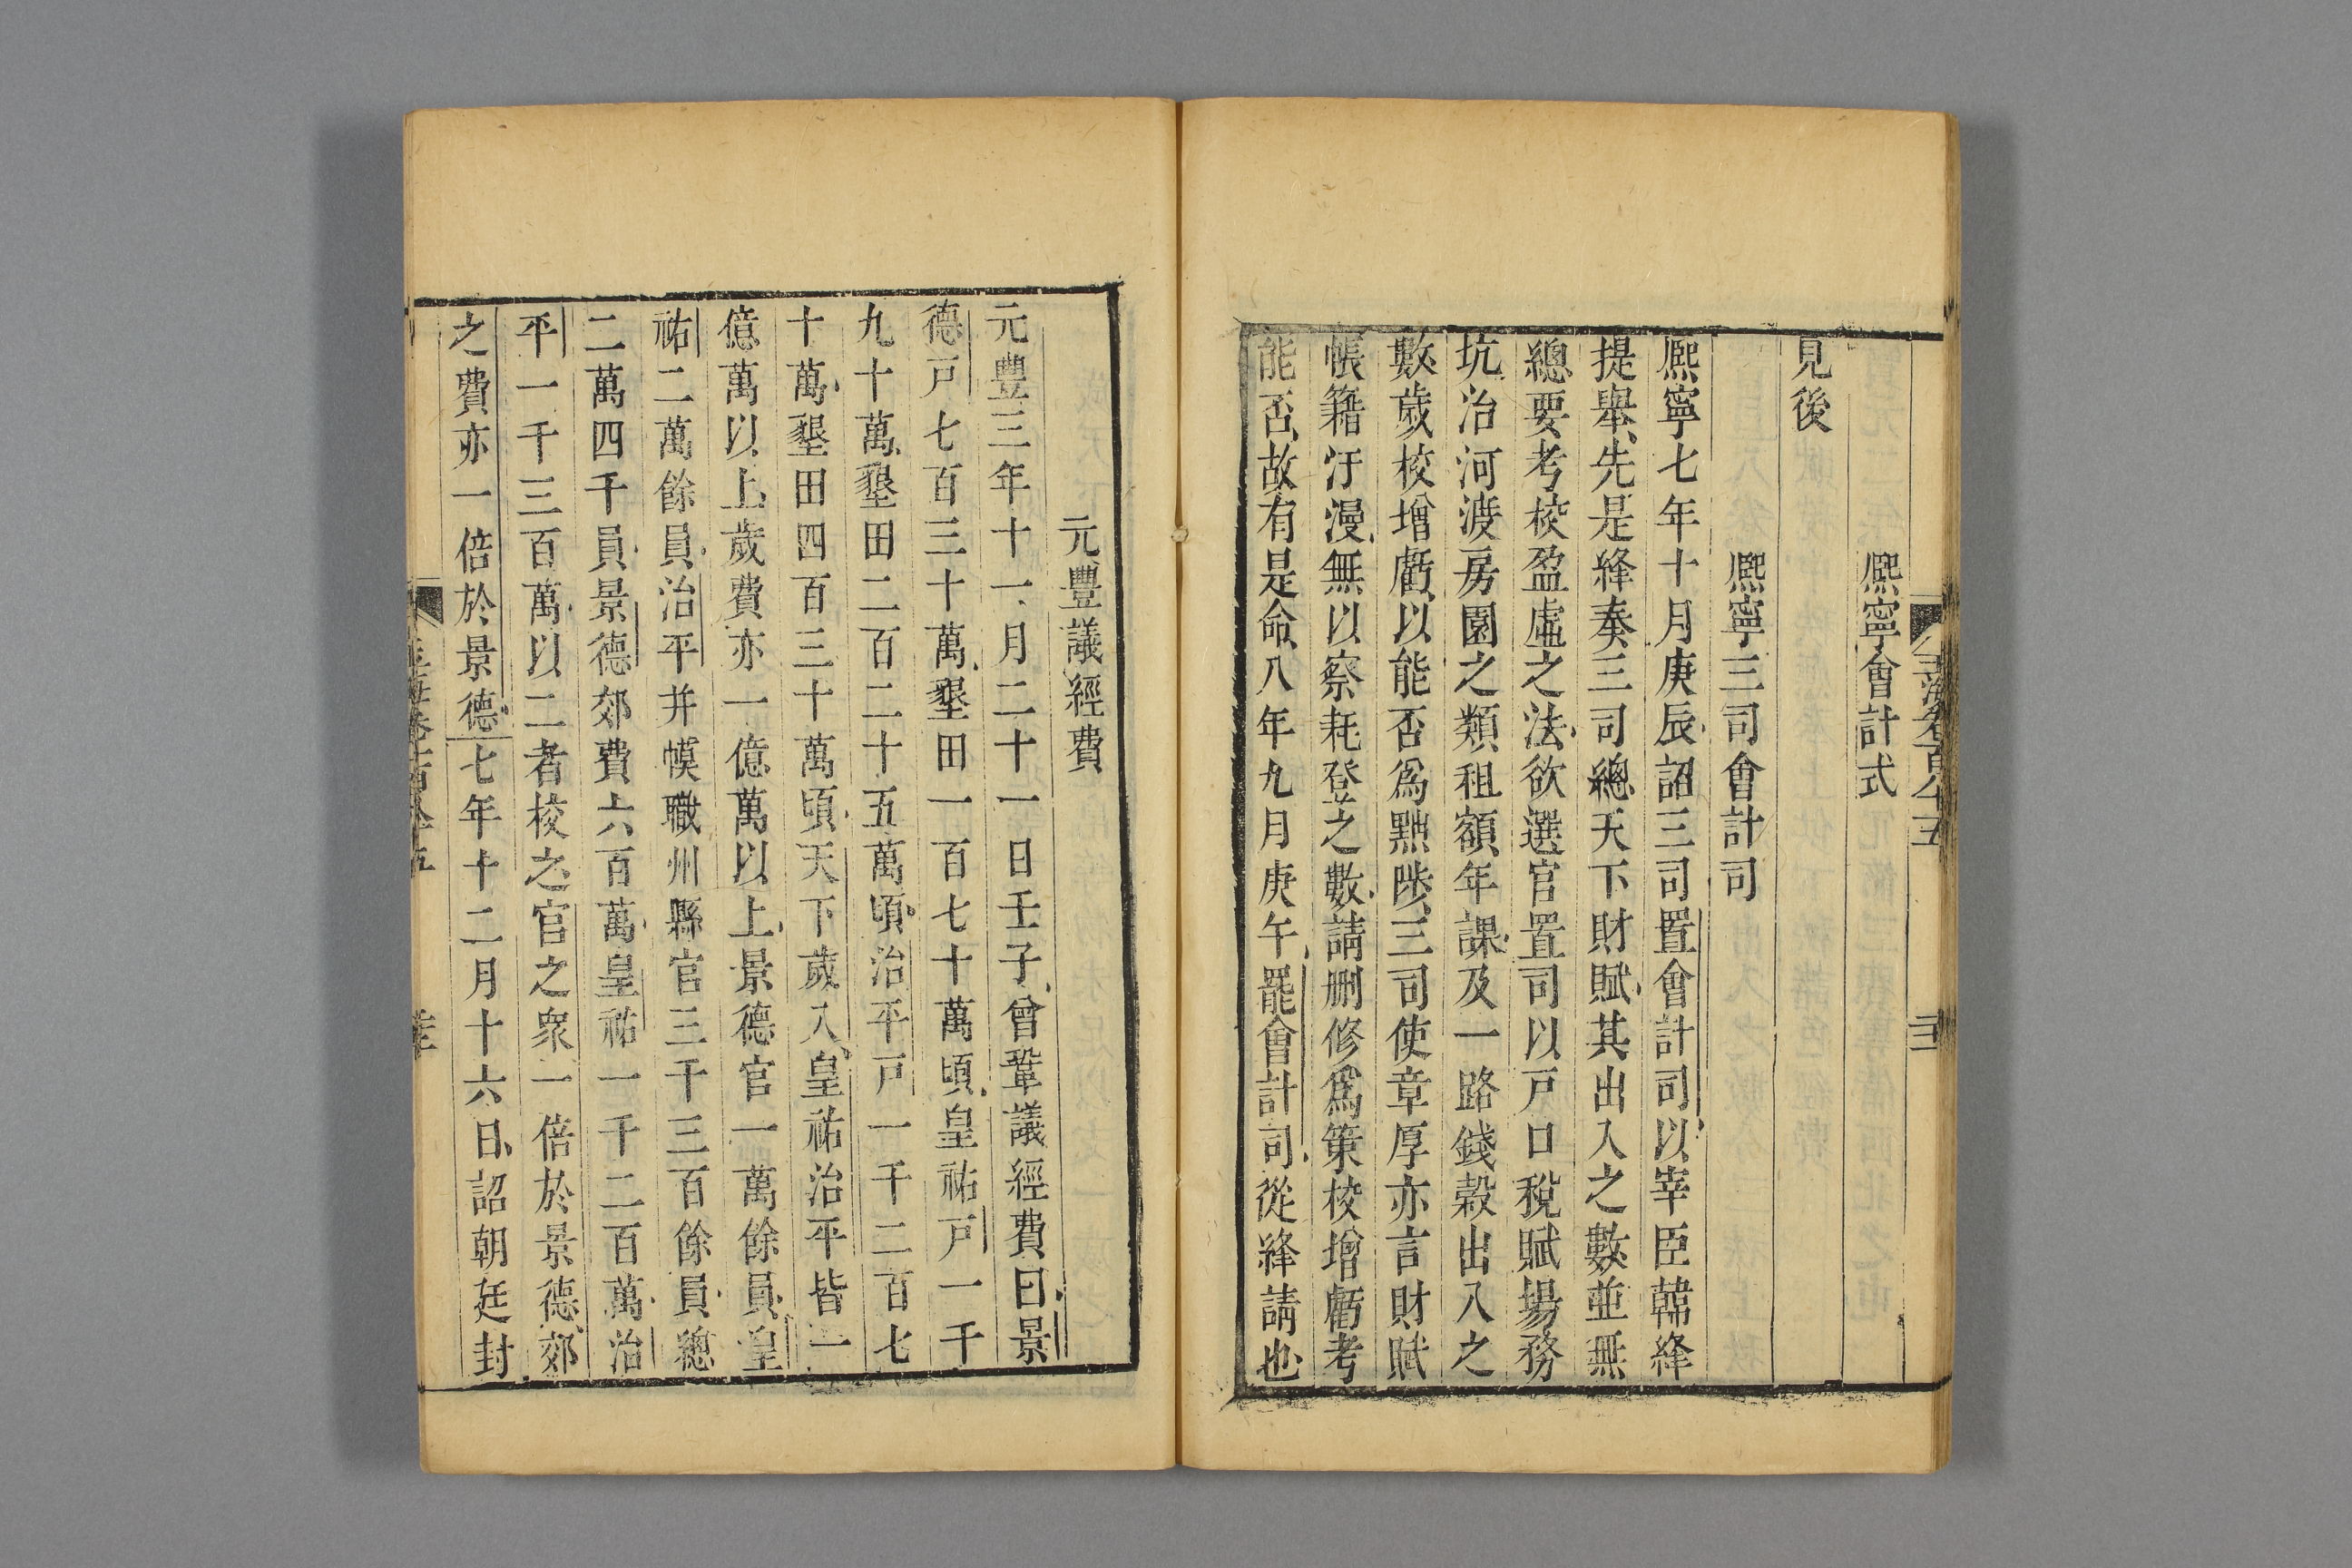 熈寧會計式
見後
熈寧三司會計司
熈寧七年十月庚辰詔三司置會計司以宰臣韓絳
提舉先是絳奏三司總天下財賦其出入之數並無
總要考校盈虛之法欲選官置司以戸口稅賦場務
坑冶河渡房園之類租額年課及一路錢穀出入之
數歲校增虧以能否爲黜陟三司使章厚亦言財賦
帳籍汗漫無以察耗登之數請删修爲策校增虧考
能否故有是命八年九月庚午罷會計司從絳請也
元豐議經費
元豐三年十一月二十一日壬子曾鞏議經費曰景
德戸七百三十萬墾田一百七十萬頃皇祐戸一千
九十萬墾田二百二十五萬頃治平戸一千二百七
十萬墾田四百三十萬頃天下歲入皇祐治平皆一
億萬以上歲費亦一億萬以上景德官一萬餘員皇
祐二萬餘員治平并幙職州縣官三千三百餘員總
二萬四千員景德郊費六百萬皇祐一千二百萬治
平一千三百萬以二者校之官之衆一倍於景德郊
之費亦一倍於景德七年十二月十六日詔朝廷封